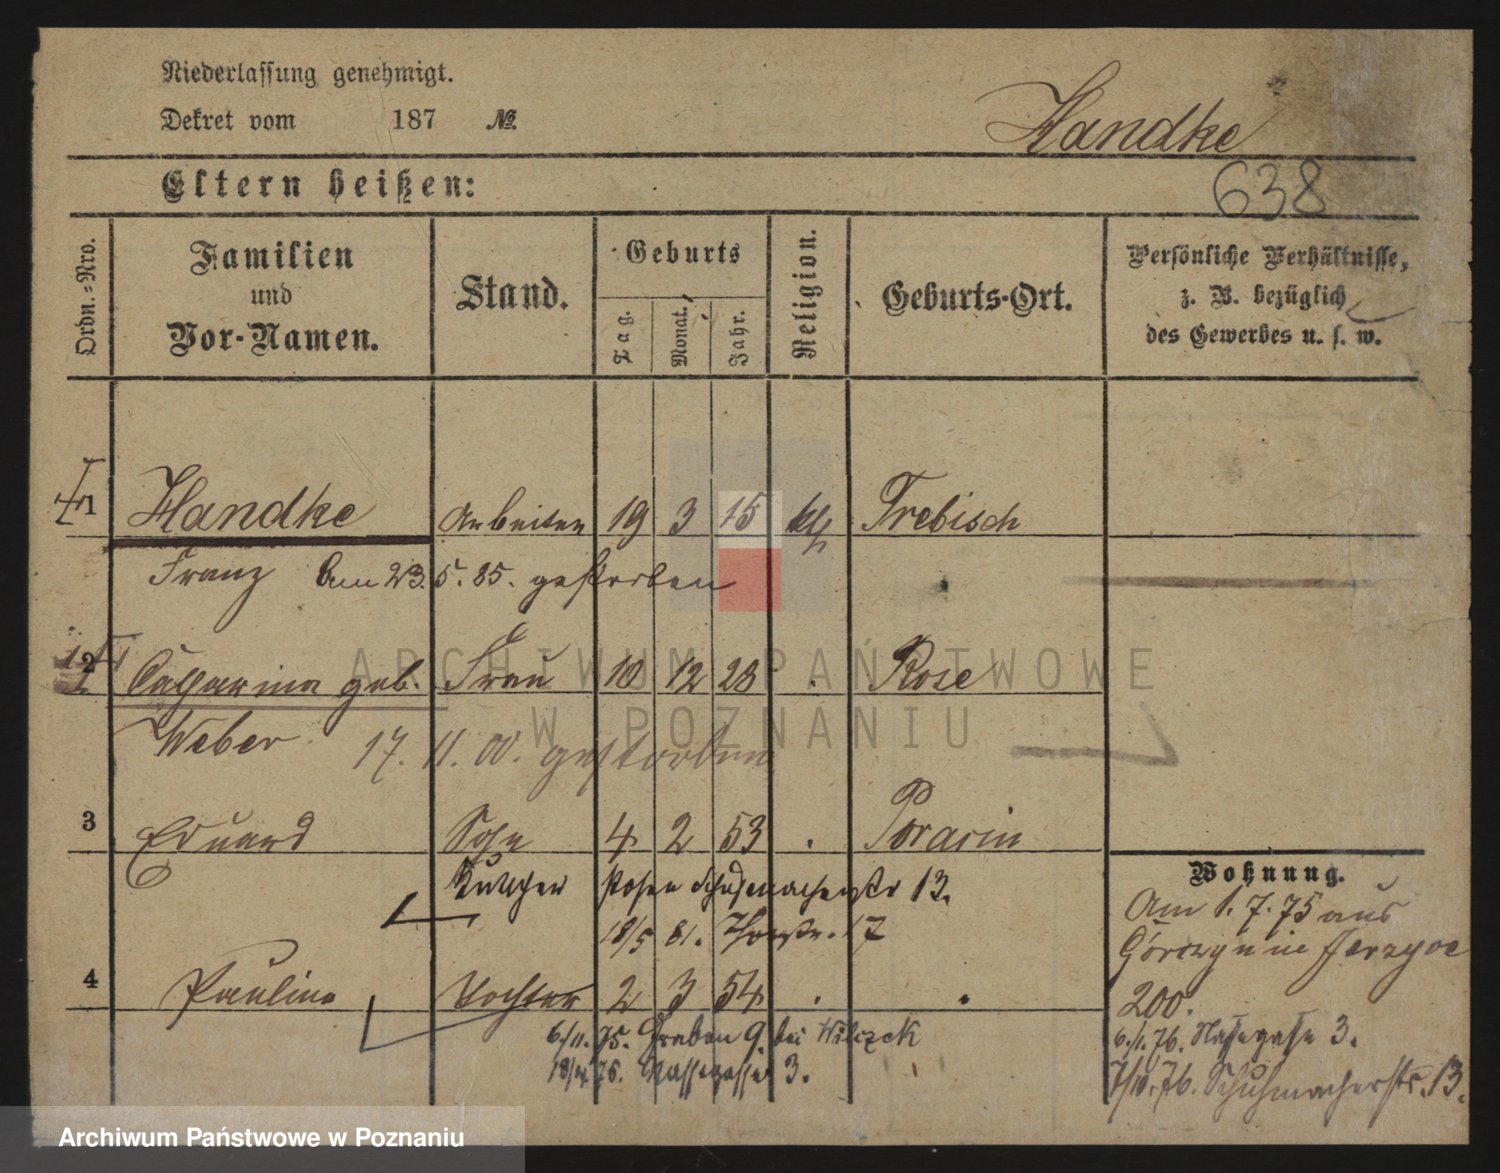 Niederlassung genehmigt.
Dekret vom 187 №.
Handke
638
Eltern heißen:
Ordn.-Nro.
Familien und Vor-Namen.
Stand.
Geburts
Tag.
Monat.
Jahr.
Religion.
Geburts-Ort.
Persönliche Verhältnisse,
z. B. bezüglich
des Gewerbes u. s. w.
1 Handke Arbeiter 19 3 15 kth Trebisch
Franz Am 23. 5. 85. gestorben
2 Catharina geb. Frau 10 12 28 Rose
Weber 17. 11. 00. gestorben
3 Eduard Sohn 4 2 53 Porazin
Posen Schuhmacherstr 13.
18/5 81. Thorstr. 17
4 Pauline Tochter 2 3 54
6/11. 75. Graben 9. bei Wilczek
18/4. 76. Nassegasse 3.
Wohnung.
Am 1. 7. 75 aus
Gorczyn in Jerzyce
200.
6./1. 76. Nassegasse 3.
7/10. 76. Schuhmacherstr. 13.
ARCHIWUM PAŃSTWOWE
W POZNANIU
Archiwum Państwowe w Poznaniu